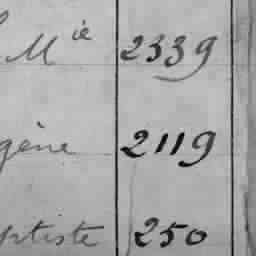 Mie 2339
gène 2119
ptiste 250